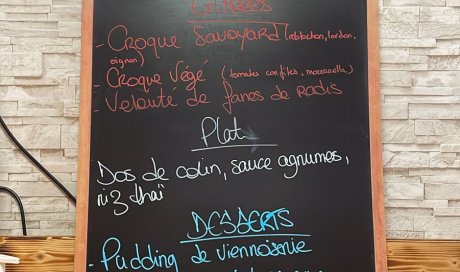 ENTRÉES
- Croque Savoyard (reblochon, lardon,
oignon)
- Croque Végé (tomates confites, mozzarella)
- Velouté de fanes de radis
Plat
Dos de colin, sauce agrumes,
riz thaï
DESSERTS
- Pudding de viennoiserie